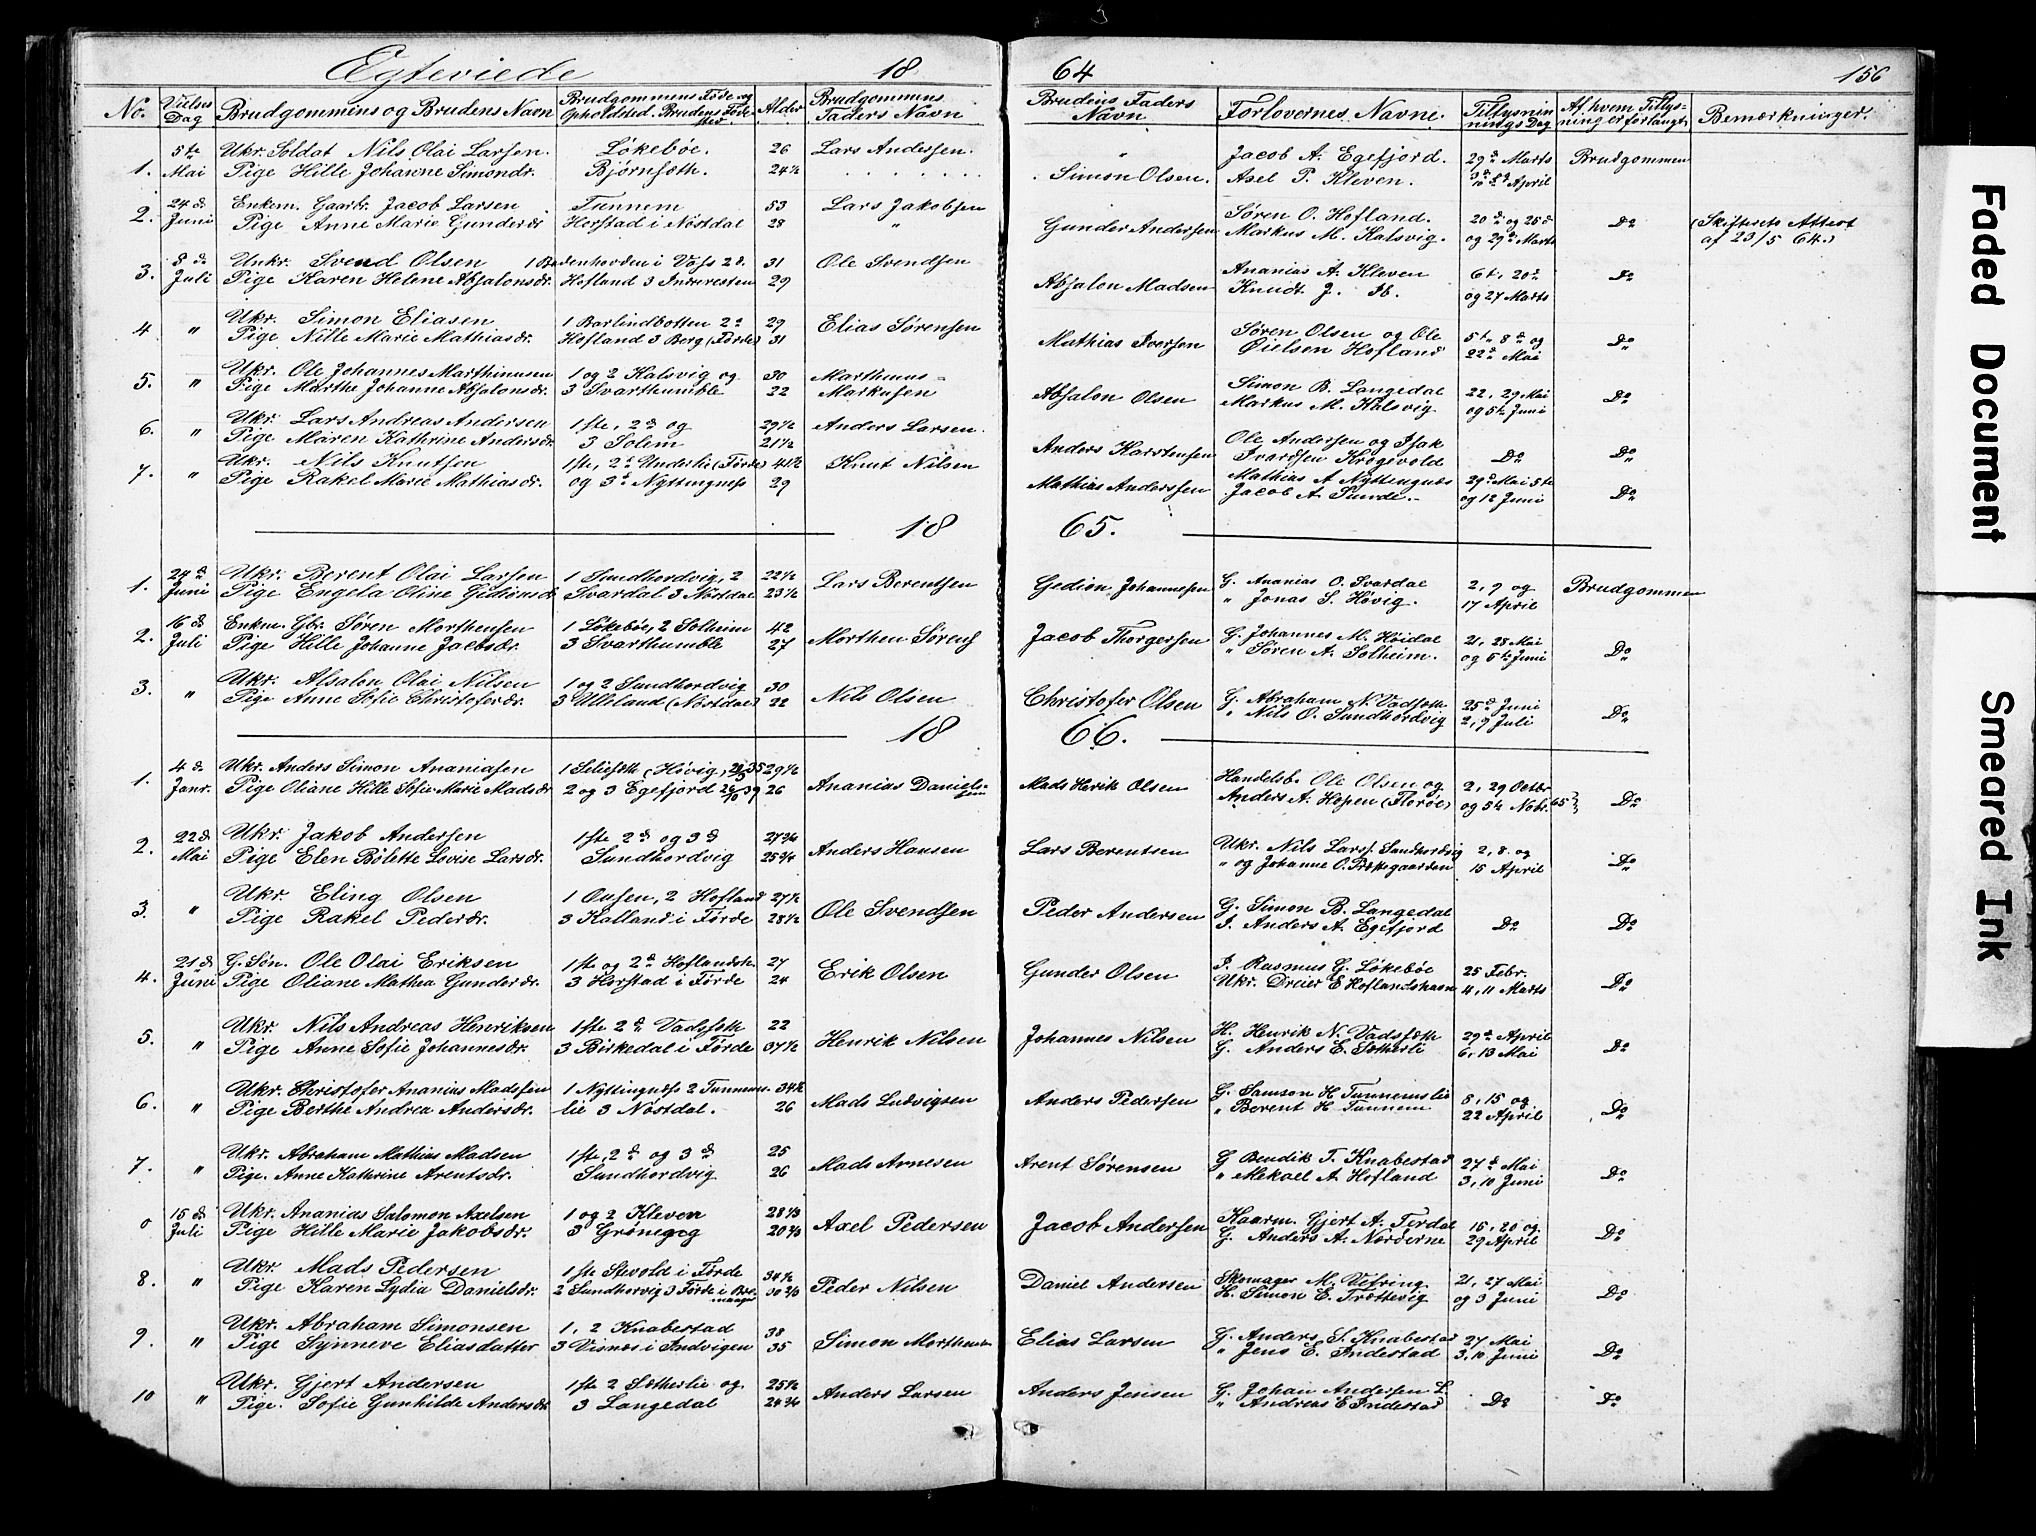 Egteviede 18 64 156
No. Vielses Dag Brudgommens og Brudens Navn Brudgommens Føde og Opholdsted. Brudens Fødested Alder Brudgommens Faders Navn Brudens Faders Navn Forlovernes Navne. Tillysnin nings Dag Af hvem Tillysning er forlangt. Bemærkninger.
5te Ukr. Soldat Nils Olai Larsen. Løkebøe. 26 Lars Andersen. " Jacob A. Egefjord. 29de Marts Brudgommen
1. Mai Pige Hille Johanne Simondr. Bjørnseth. 24½ Simon Olsen. Axel P. Kleven. April
24de Enkem. Gaardbr. Jacob Larsen Tunnem 53 Lars Jakobsen Søren O. Hofland. 20de og 25de Do (Skifterets Attest
2. Juni Pige Anne Marie Gunderdr Herstad i Nøstdal 28 " Gunder Andersen Markus M. Kalsvig. og 29de Marts af 23/5 64.)
8de Unkr. Svend Olsen 1 Badenhorden i Voss 2d. 31 Ole Svendsen Ananias A. Kleven 6te, 20de Do
3. Juli Pige Karen Helene Absalonsdr. Hofland 3 Indrevesten 29 Absalon Madsen Knudt J. og 27 Marts
Ukr. Simon Eliasen 1 Barlindbotten 2d 29 Elias Sørensen Søren Olsen og Ole 5te 8de og
4 " Pige Nille Marie Mathiasdr. Hofland 3 Berg (Førde) 31 Mathias Iversen Øielsen Hofland 22de Mai Do
Ukr. Ole Johannes Marthinusen 1 og 2 Kalsvig og 30 Marthinus = Simon B. Langedal 22, 29 Mai
5. " Pige Marthe Johanne Absalonsdr. 3 Svarthumble 22 Markusen Absalon Olsen Markus M. Kalsvig. og 5te Juni Do
Ukr. Lars Andreas Andersen 1ste, 2de og 29½ Anders Larsen. Ole Andersen og Isak
6. " Pige Maren Kathrine Andersdr. 3 Solem 21½ Anders Karstensen Ivarsen Krogevold Do Do
Ukr. Nils Knutsen 1ste, 2de Underlie (Førde) 41½ Knut Nilsen Mathias A Nyttengnæs 29de Mai 5te
7. " Pige Rakel Marie Mathiasdr. og 3de Nyttingnæs 29 Mathias Anderssen Jacob A. Sunde.- og 12 Juni Do
18 65.
24de Ukr. Berent Olai Larsen 1 Sundhordvig, 2 22½ Lars Berentsen Gedion Johannesen G. Ananias O. Svardal 2, 9 og Brudgommen
1. Juni Pige Engela Oline Gidionsdr Svardal 3 Nøstdal 23½ " Jonas S. Høvig. 17 April
16de Enkm. Gbr. Søren Morthensen 1 Løkebøe, 2 Solheim 42 Morthen Sørens Jacob Thorgersen G. Johannes M. Høidal 21, 28 Mai
2. Juli Pige Hille Johanne Jacobsdr. 3 Svarthumble 27 " Søren A. Solheim. og 5te Juni Do
Ukr. Absalon Olai Nilsen 1 og 2 Sundhordvig 30 Nils Olsen Christofer Olsen G. Abraham N. Vadseth 25de Juni
3. " Pige Anne Sofie Christoferdr. 3 Ulleland (Nøstdal) 22 " Nils O. Sundhordvig 2, 9 Juli Do
18 66.
4de Ukr. Anders Simon Ananiasen 1 Seliesæth (Høvig) 35 29½ Ananias Danielsen Mads Henrik Olsen Handelsb. Ole Olsen og 2, 29 Octbr.
1. Janr. Pige Oliane Hille Sofie Marie Madsdr 2 og 3 Egefjord 26/10 39 26 Anders A. Hopen (Florøe) og 5te Nobr. 65 Do
22de Ukr. Jakob Andersen 1ste 2de og 3de 27¾ Anders Hansen Lars Berentsen Ukr. Nils Larss. Sundhordvig 2, 8. og
2. Mai Pige Elen Bølette Lovise Larsdr. Sundhordvig 25¾ " og Johanne O. Præstegaarden 15 April Do
Ukr. Eling Olsen 1 Ousen, 2 Hofland 27½ Ole Svendsen Peder Andersen G. Simon B. Langedal
3. " Pige Rakel Pederdr. 3 Kalland i Førde 28½ I. Anders A. Egefjord Do Do
21de G. Søn. Ole Olai Eriksen 1ste og 2de Hoflandsh. 27 Erik Olsen Gunder Olsen I. Rasmus G. Løkebøe 25 Febr.
4. Juni Pige Oliane Mathea Gunderdr. 3 Horstad i Førde 24 Ukr. Dreier E Hoflandshavn 4, 11 Marts Do
Ukr. Nils Andreas Henriksen 1ste 2de Vadsseth 22 Henrik Nilsen Johannes Nilsen H. Henrik N. Vadsseth 29de April
5. " Pige Anne Sofie Johannesdr. 3 Birkedal i Førde 37½ G. Anders E. Sætherli 6, 13 Mai Do
Ukr. Christofer Ananias Madssen 1 Nyttingnæs 2 Tunnem- 34½ Mads Ludvigsen Anders Pedersen G. Samson H Tunnemslie 8, 15 og
6. " Pige Berthe Andrea Andersdr. lie 3 Nøstdal. 26 " Berent H Tunnem 22 April Do
Ukr. Abraham Mathias Madsen 1ste, 2de og 3de 25 Mads Arnesen Arent Sørensen G Bendik T. Knabestad 27de Mai
7. " Pige. Anne Kathrine Arentsdr. Sundhordvig 26 " Mekael A. Hofland 3, 10 Juni Do
15de Ukr. Ananias Salomon Axelsen 1 og 2 Kleven 28⅓ Axel Pedersen Jacob Andersen Kaarm. Gjert A. Ferdal 16, 20 og
Juli Pige Hille Marie Jakobsdr. 3 Grøneng 20⅔ G. Anders A. Norderne 29 April Do
Ukr. Mads Pedersen 1ste Stevold i Førde 34½ Peder Nilsen Daniel Andersen Skomager M. Vefring 21, 27 Mai
8. " Pige Karen Lydia Danielsdr. 2 Sundhorvig 3 Førde i Bremanger 30⅔ H. Simon E. Trættevig og 3 Juni Do
Ukr. Abraham Simonsen 1, 2 Knabestad 38 Simon Morthensen Elias Larsen G. Anders S. Knabestad 27 Mai
9. " Pige Synneve Eliasdatter 3 Visnæs i Indvigen 35 " Jens E. Indestad 3, 10 Juni Do
Ukr. Gjert Andersen 1ste 2 Sætherlie og 25½ Anders Larsen Anders Jensen G. Johan Andersen L.
10 " Pige. Sofie Gunhilde Andersdr 3 Langedal 24¾ " Andreas E Indestad Do Do
Faded Document
Smeared Ink